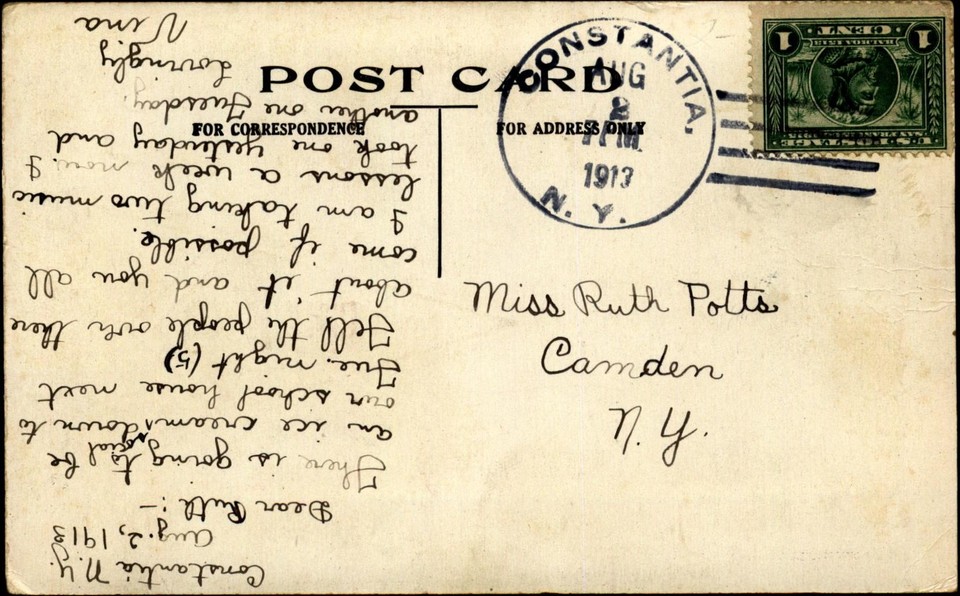 POST CARD
FOR CORRESPONDENCE
FOR ADDRESS ONLY
CONSTANTIA.
AUG
2
PM
1913
N. Y.
U.S. POSTAGE
1 CENT 1
Miss Ruth Potts
Camden
N. Y.
Constantia N.Y.
Aug. 2, 1913
Dear Ruth :-
There is going to be
an ice cream social down to
our school house next
Tue. night (5)
Tell the people over there
about it and you all
come if possible.
I am taking two music
lessons a week now. I
took one yesterday and
another one Tuesday.
Lovingly
Nina